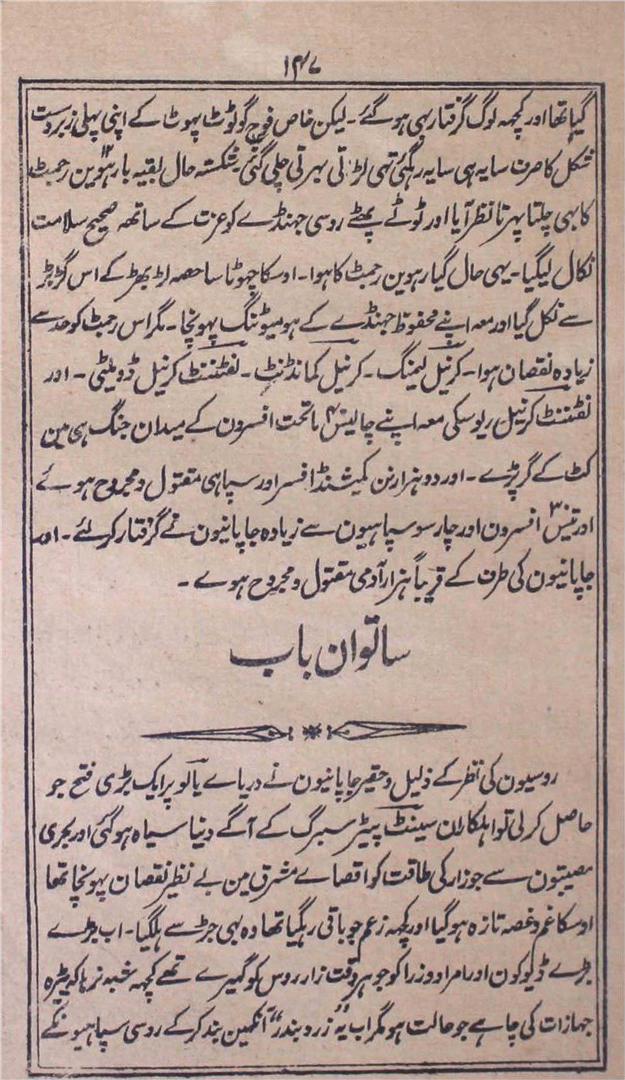 ۱۴۷
گیا تھا اور کچھہ لوگ گرفتار ہی ہوگئے ۔ لیکن خاص فوج گو ٹوٹ پہوٹ کے اپنی پہلی زبردست
شکل کا صرف سایہ ہی سایہ رہگئی تہی لڑتی بہرتی چلی گئی شکستہ حال بقیہ بارہوین رجمنٹ
کا بہی چلتا پہرتا نظر آیا اور ٹوٹے پھٹے روسی جہنڈے کو عزت کے ساتھہ صحیح سلامت
نکال لیگیا ۔ یہی حال گیارہوین رجمنٹ کا ہوا ۔ اوسکا چہوٹا سا حصہ لڑ بھڑ کے اس گڑبڑ
سے نکل گیا اور معہ اپنے محفوظ جہنڈے کے ہومیوٹنگ پہونچا ۔ مگر اس رجمنٹ کو حد سے
زیادہ نقصان ہوا ۔ کرنیل لیمنگ ۔ کرنیل کمانڈنٹ ۔ لفٹننٹ کرنیل ڈومیٹی ۔ اور
لفٹننٹ کرنیل ریوسکی معہ اپنے چالیس ۴۰ ماتحت افسرون کے میدان جنگ ہی مین
کٹ کے گر پڑے ۔ اور دو ہزار نن کمیشنڈ افسر اور سپاہی مقتول و مجروح ہوئے
اور تیس ۳۰ افسرون اور چار سو سپاہیون سے زیادہ جاپانیون نے گرفتار کرلئے ۔ اور
جاپانیون کی طرف کے قریباً ہزار آدمی مقتول و مجروح ہوے ۔
ساتوان باب
روسیون کی نظر کے ذلیل و حقیر جاپانیون نے دریاے یالو پر ایک بڑی فتح جو
حاصل کرلی تو اہلکاران سینٹ پیٹرسبرگ کے آگے دنیا سیاہ ہوگئی اور بحری
مصیبتون سے جو زار کی طاقت کو اقصاے مشرق مین بے نظیر نقصان پہونچا تھا
اوسکا غم و غصہ تازہ ہوگیا اور کچہہ زعم جو باقی رہگیا تھا وہ بہی جڑ سے ہلگیا ۔ اب بڑے
بڑے ڈیوکون اور امرا و وزرا کو جو ہر وقت زار روس کو گہیرے تھے کچھہ شبہ نرہا کہ بیڑہ
جہازات کی چاہے جو حالت ہو مگر اب یہ "زرد بندر" آنکہین بند کرکے روسی سپاہیونکے